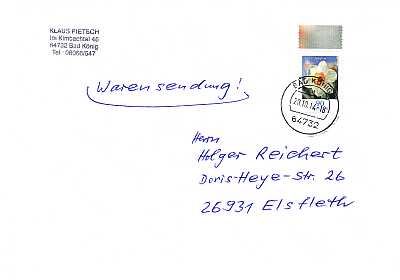 KLAUS PIETSCH
Im Kimbachtal 46
64732 Bad König
Tel.: 06066/547
Warensendung!
BAD KÖNIG
64732
Herrn
Holger Reichert
Doris-Heye-Str. 26
26931 Elsfleth